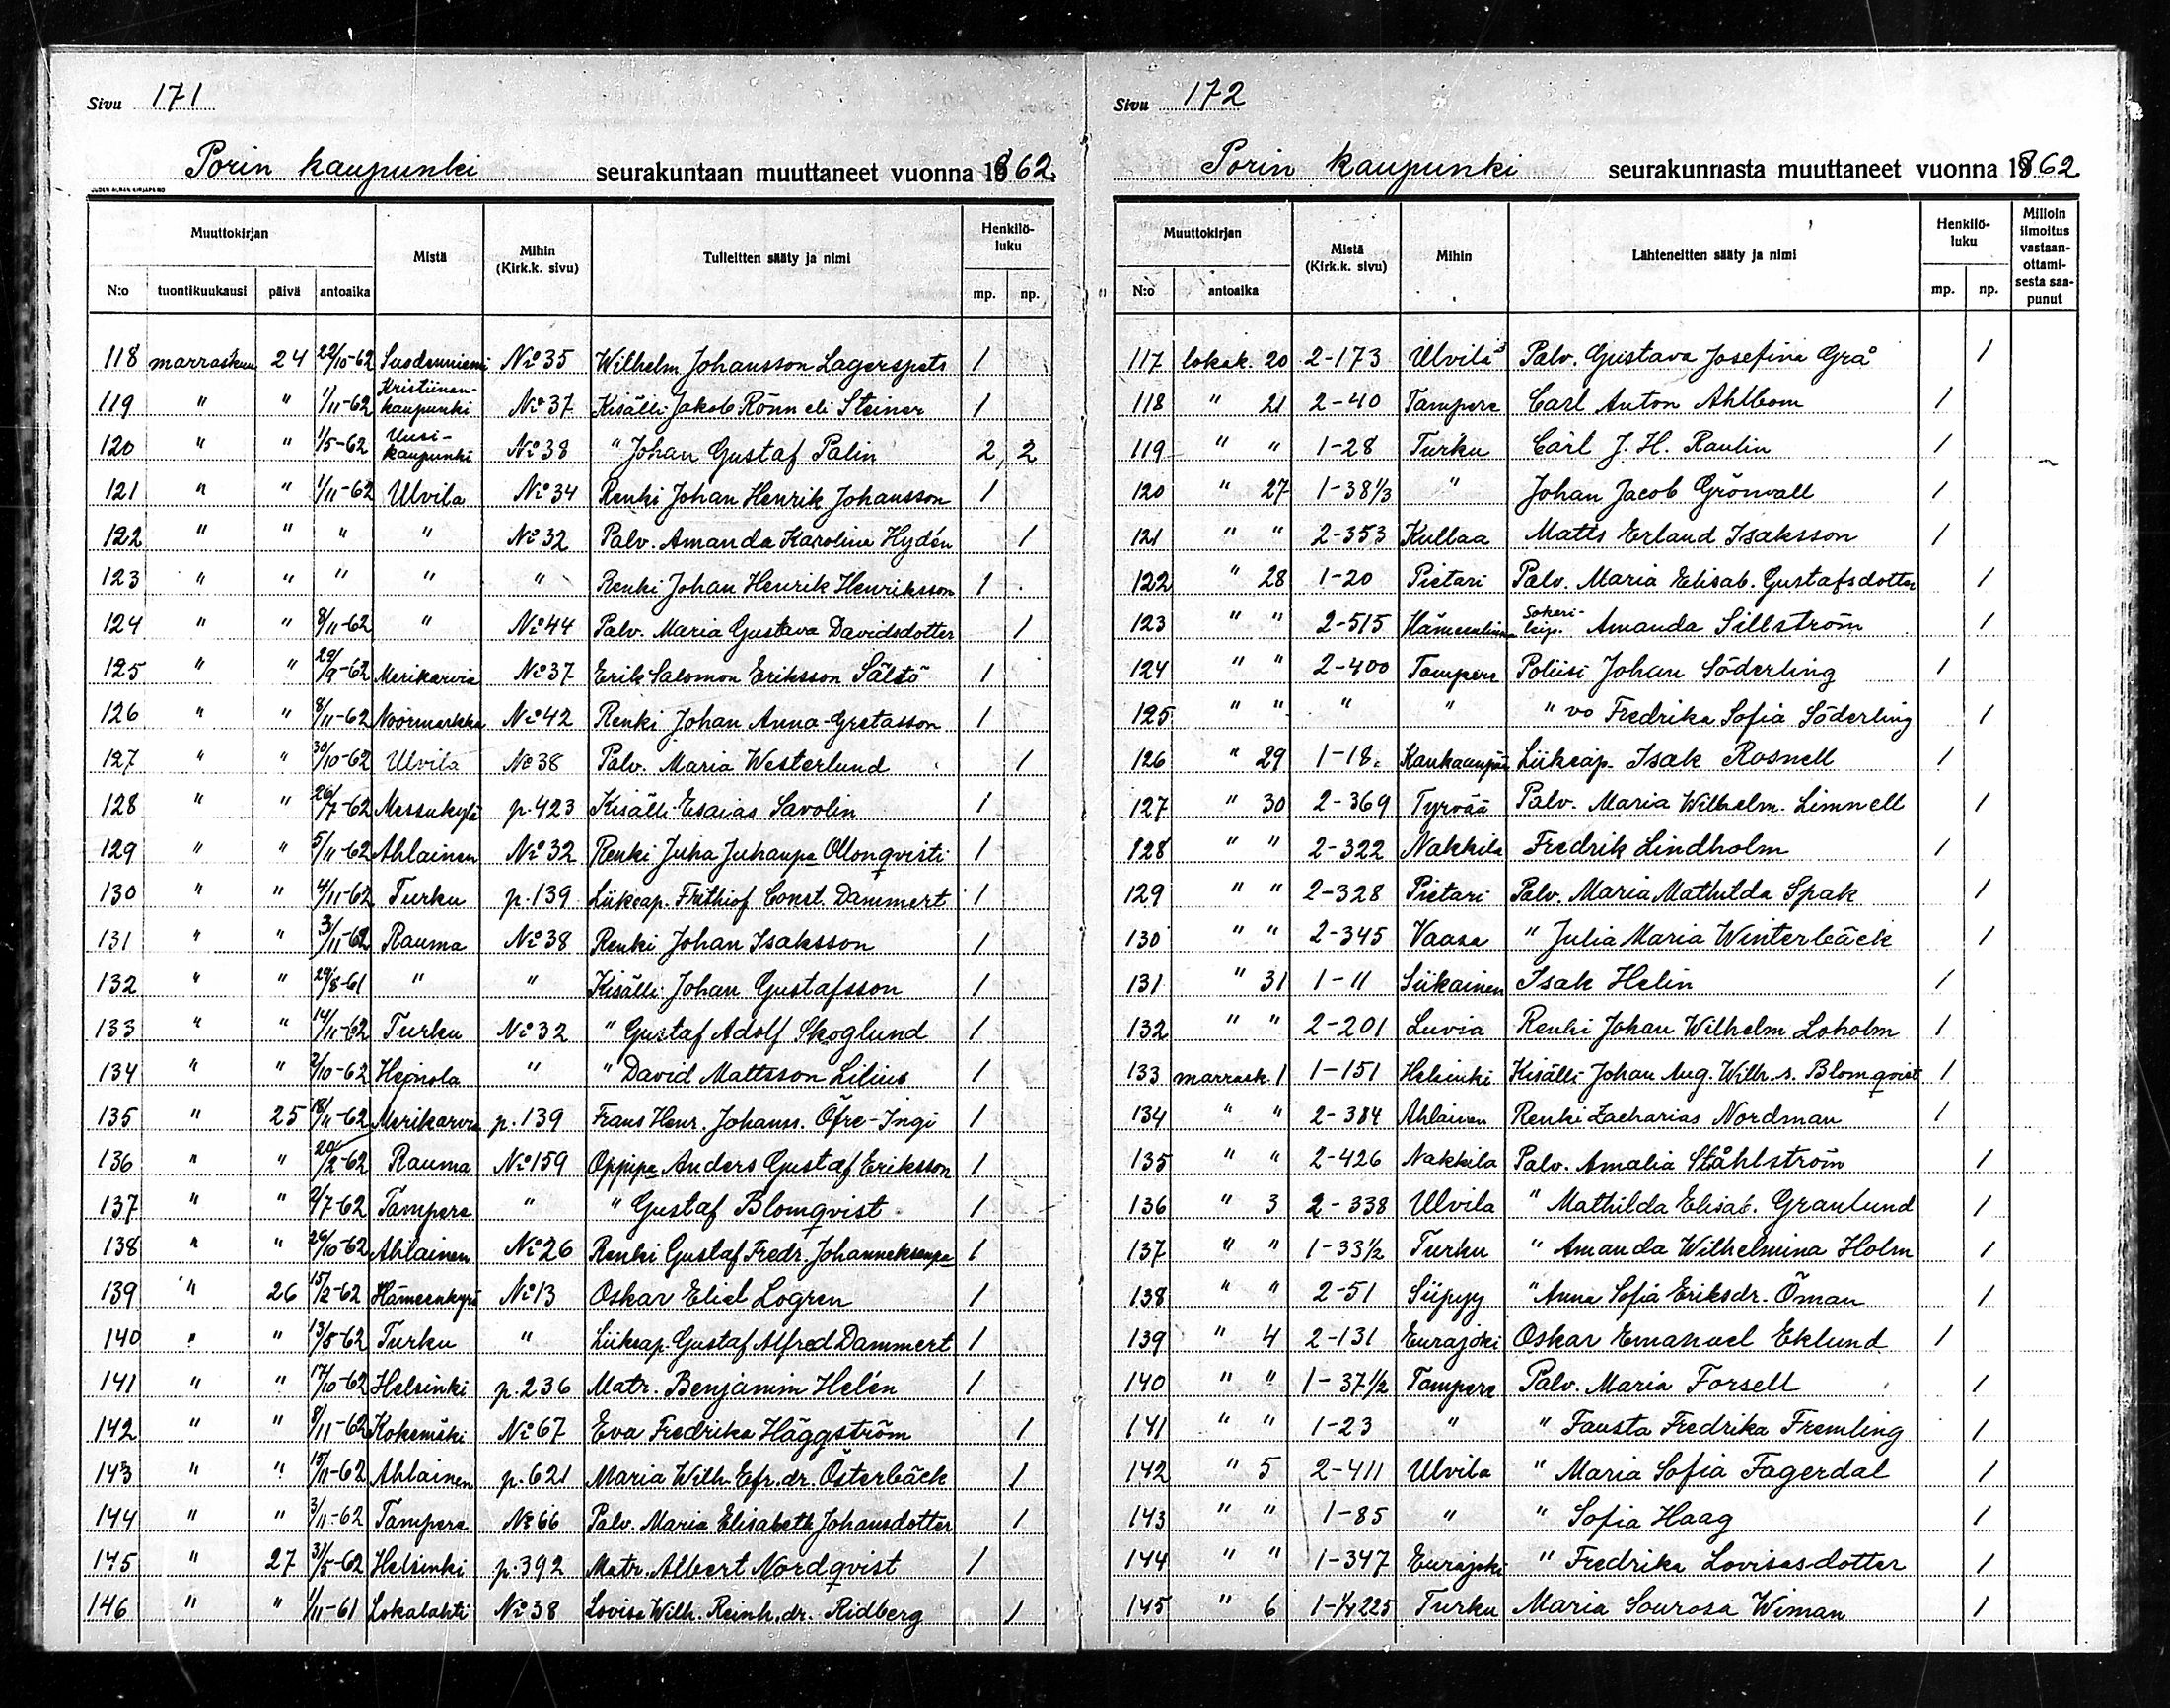 Sivu 171
Porin kaupunki seurakuntaan muuttaneet vuonna 1862.
Muuttokirjan Mistä Mihin (Kirk.k. sivu) Tulleitten sääty ja nimi Henkilö-luku
N:o tuontikuukausi päivä antoaika mp. np.
118 marraskuu 24 22/10-62 Suodenniemi No 35 Wilhelm Johansson Lagerspets 1
119 " " 1/11-62 Kristiinan-kaupunki No 37 Kisälli Jakob Rönn eli Steiner 1
120 " " 1/5-62 Uusi-kaupunki No 38 " Johan Gustaf Palin 2, 2
121 " " 1/11-62 Ulvila No 34 Renki Johan Henrik Johansson 1
122 " " " " No 32 Palv. Amanda Karolina Hydén 1
123 " " " " " Renki Johan Henrik Henriksson 1
124 " " 8/11-62 " No 44 Palv. Maria Gustava Davidsdotter 1
125 " " 29/9-62 Merikarvia No 37 Erik Salomon Eriksson Sältö 1
126 " " 8/11-62 Noormarkku No 42 Renki Johan Anna-Gretasson 1
127 " " 30/10-62 Ulvila No 38 Palv. Maria Westerlund 1
128 " " 26/7-62 Messukylä p. 423 Kisälli Esaias Savolin 1
129 " " 5/11-62 Ahlainen No 32 Renki Juha Juhanpa Ollonqvisti 1
130 " " 4/11-62 Turku p. 139 Liikeap. Frithiof Const. Dammert 1
131 " " 3/11-62 Rauma No 38 Renki Johan Isaksson 1
132 " " 29/8-61 " " Kisälli Johan Gustafsson 1
133 " " 14/11-62 Turku No 32 " Gustaf Adolf Skoglund 1
134 " " 2/10-62 Heinola " " David Mattsson Lilius 1
135 " 25 18/11-62 Merikarvia p. 139 Frans Henr. Johanss. Öfre-Ingi 1
136 " " 20/2-62 Rauma No 159 Oppipa Anders Gustaf Eriksson 1
137 " " 2/7-62 Tampere " " Gustaf Blomqvist 1
138 " " 26/10-62 Ahlainen No 26 Renki Gustaf Fredr. Johanneksenpa 1
139 " 26 15/2-62 Hämeenkyrö No 13 Oskar Eliel Logren 1
140 " " 13/5-62 Turku " Liikeap. Gustaf Alfred Dammert 1
141 " " 17/10-62 Helsinki p. 236 Matr. Benjamin Helén 1
142 " " 8/11-62 Kokemäki No 67 Eva Fredrika Häggström 1
143 " " 15/11-62 Ahlainen p. 621 Maria Wilh. Efr. dr. Österbäck 1
144 " " 3/11-62 Tampere No 66 Palv. Maria Elisabeth Johansdotter 1
145 " 27 31/5-62 Helsinki p. 392 Matr. Albert Nordqvist 1
146 " " 1/11-61 Lokalahti No 38 Lovisa Wilh. Reinh. dr. Ridberg 1
Sivu 172
Porin kaupunki seurakunnasta muuttaneet vuonna 1862
Muuttokirjan Mistä (Kirk.k. sivu) Mihin Lähteneitten sääty ja nimi Henkilö-luku Milloin ilmoitus vastaan-ottami-sesta saa-punut
N:o antoaika mp. np.
117 lokak. 20 2-173 Ulvila Palv. Gustava Josefina Grå 1
118 " 21 2-40 Tampere Carl Anton Ahlbom 1
119 " " 1-28 Turku Carl J. H. Raulin 1
120 " 27 1-38 1/3 " Johan Jacob Grönvall 1
121 " " 2-353 Kullaa Matts Erland Isaksson 1
122 " 28 1-20 Pietari Palv. Maria Elisab. Gustafsdotter 1
123 " " 2-515 Hämeenlinna Sokeri-leip. Amanda Sillström 1
124 " " 2-400 Tampere Poliisi Johan Söderling 1
125 " " " " " vo Fredrika Sofia Söderling 1
126 " 29 1-18 Liikeap. Isak Rosnell 1
127 " 30 2-369 Tyrvää Palv. Maria Wilhelm. Limnell 1
128 " " 2-322 Nakkila Fredrik Lindholm 1
129 " " 2-328 Pietari Palv. Maria Mathilda Spak 1
130 " " 2-345 Vaasa " Julia Maria Winterbäck 1
131 " 31 1-11 Siikainen Isak Helin 1
132 " " 2-201 Luvia Renki Johan Wilhelm Loholm 1
133 marrask. 1 1-151 Helsinki Kisälli Johan Aug. Wilh. s. Blomqvist 1
134 " " 2-384 Ahlainen Renki Zacharias Nordman 1
135 " " 2-426 Nakkila Palv. Amalia Ståhlström 1
136 " 3 2-338 Ulvila " Mathilda Elisab. Granlund 1
137 " " 1-33 1/2 Turku " Amanda Wilhelmina Holm 1
138 " " 2-51 Siipyy " Anna Sofia Eriksdr. Öman 1
139 " 4 2-131 Eurajoki Oskar Emanuel Eklund 1
140 " " 1-37 1/2 Tampere Palv. Maria Forsell 1
141 " " 1-23 " " Fausta Fredrika Fremling 1
142 " 5 2-411 Ulvila " Maria Sofia Fagerdal 1
143 " " 1-85 " " Sofia Haag 1
144 " " 1-347 Eurajoki " Fredrika Lovisasdotter 1
145 " 6 1-1/4 225 Turku Maria Sourosa Wiman 1